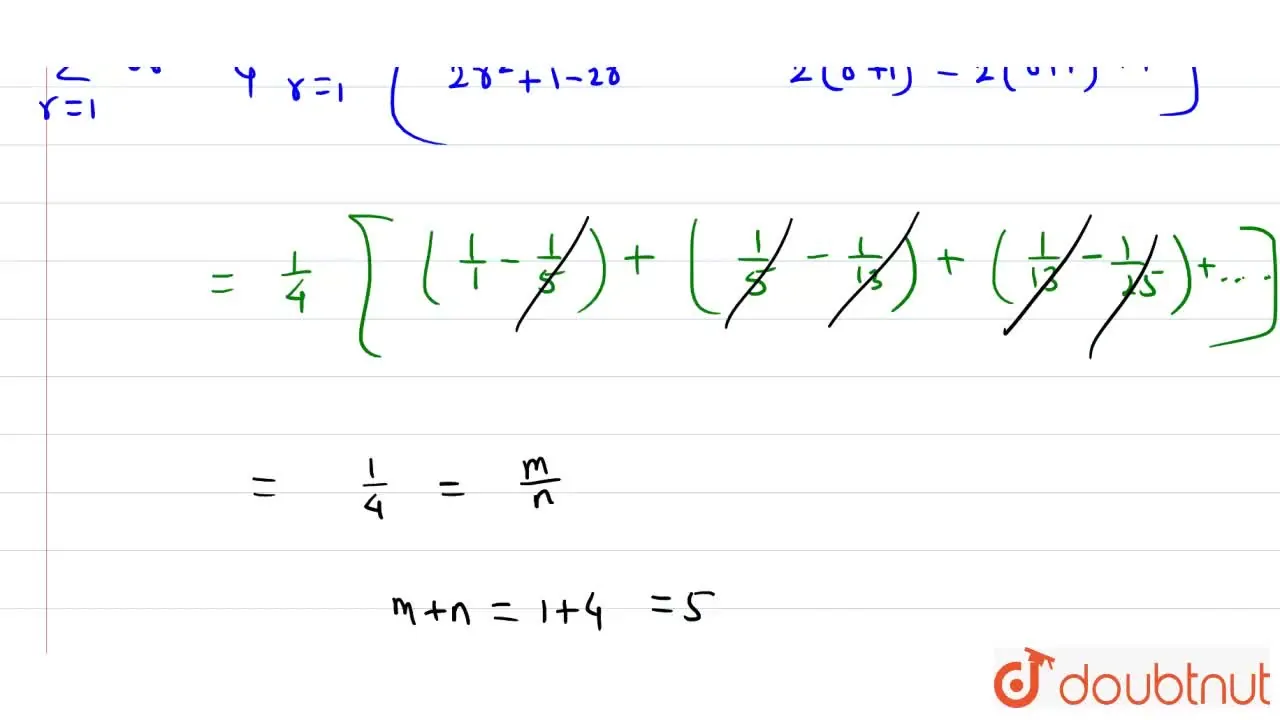 r=1 4 r=1 ( 2r²+1-2r 2(r+1) - 2(r+1)+1 ]
= 1/4 [ (1/1 - 1/5) + (1/5 - 1/13) + (1/13 - 1/25) + .... ]
= 1/4 = m/n
m+n = 1+4 = 5
doubtnut